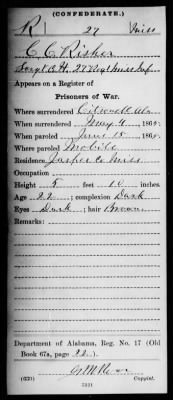 (CONFEDERATE.)
R 27 Miss
C. C. Risher
Sergt Co. H, 27 Regt Miss Inf
Appears on a Register of
Prisoners of War.
Where surrendered Citronelle Ala
When surrendered May 4, 1865
When paroled June 15, 1865
Where paroled Mobile
Residence Jasper Co Miss
Occupation
Height 5 feet 10 inches
Age 22 ; complexion Dark
Eyes Dark ; hair Brown
Remarks:
Department of Alabama, Reg. No. 17 (Old
Book 67a, page 22.)
(639) Copyist.